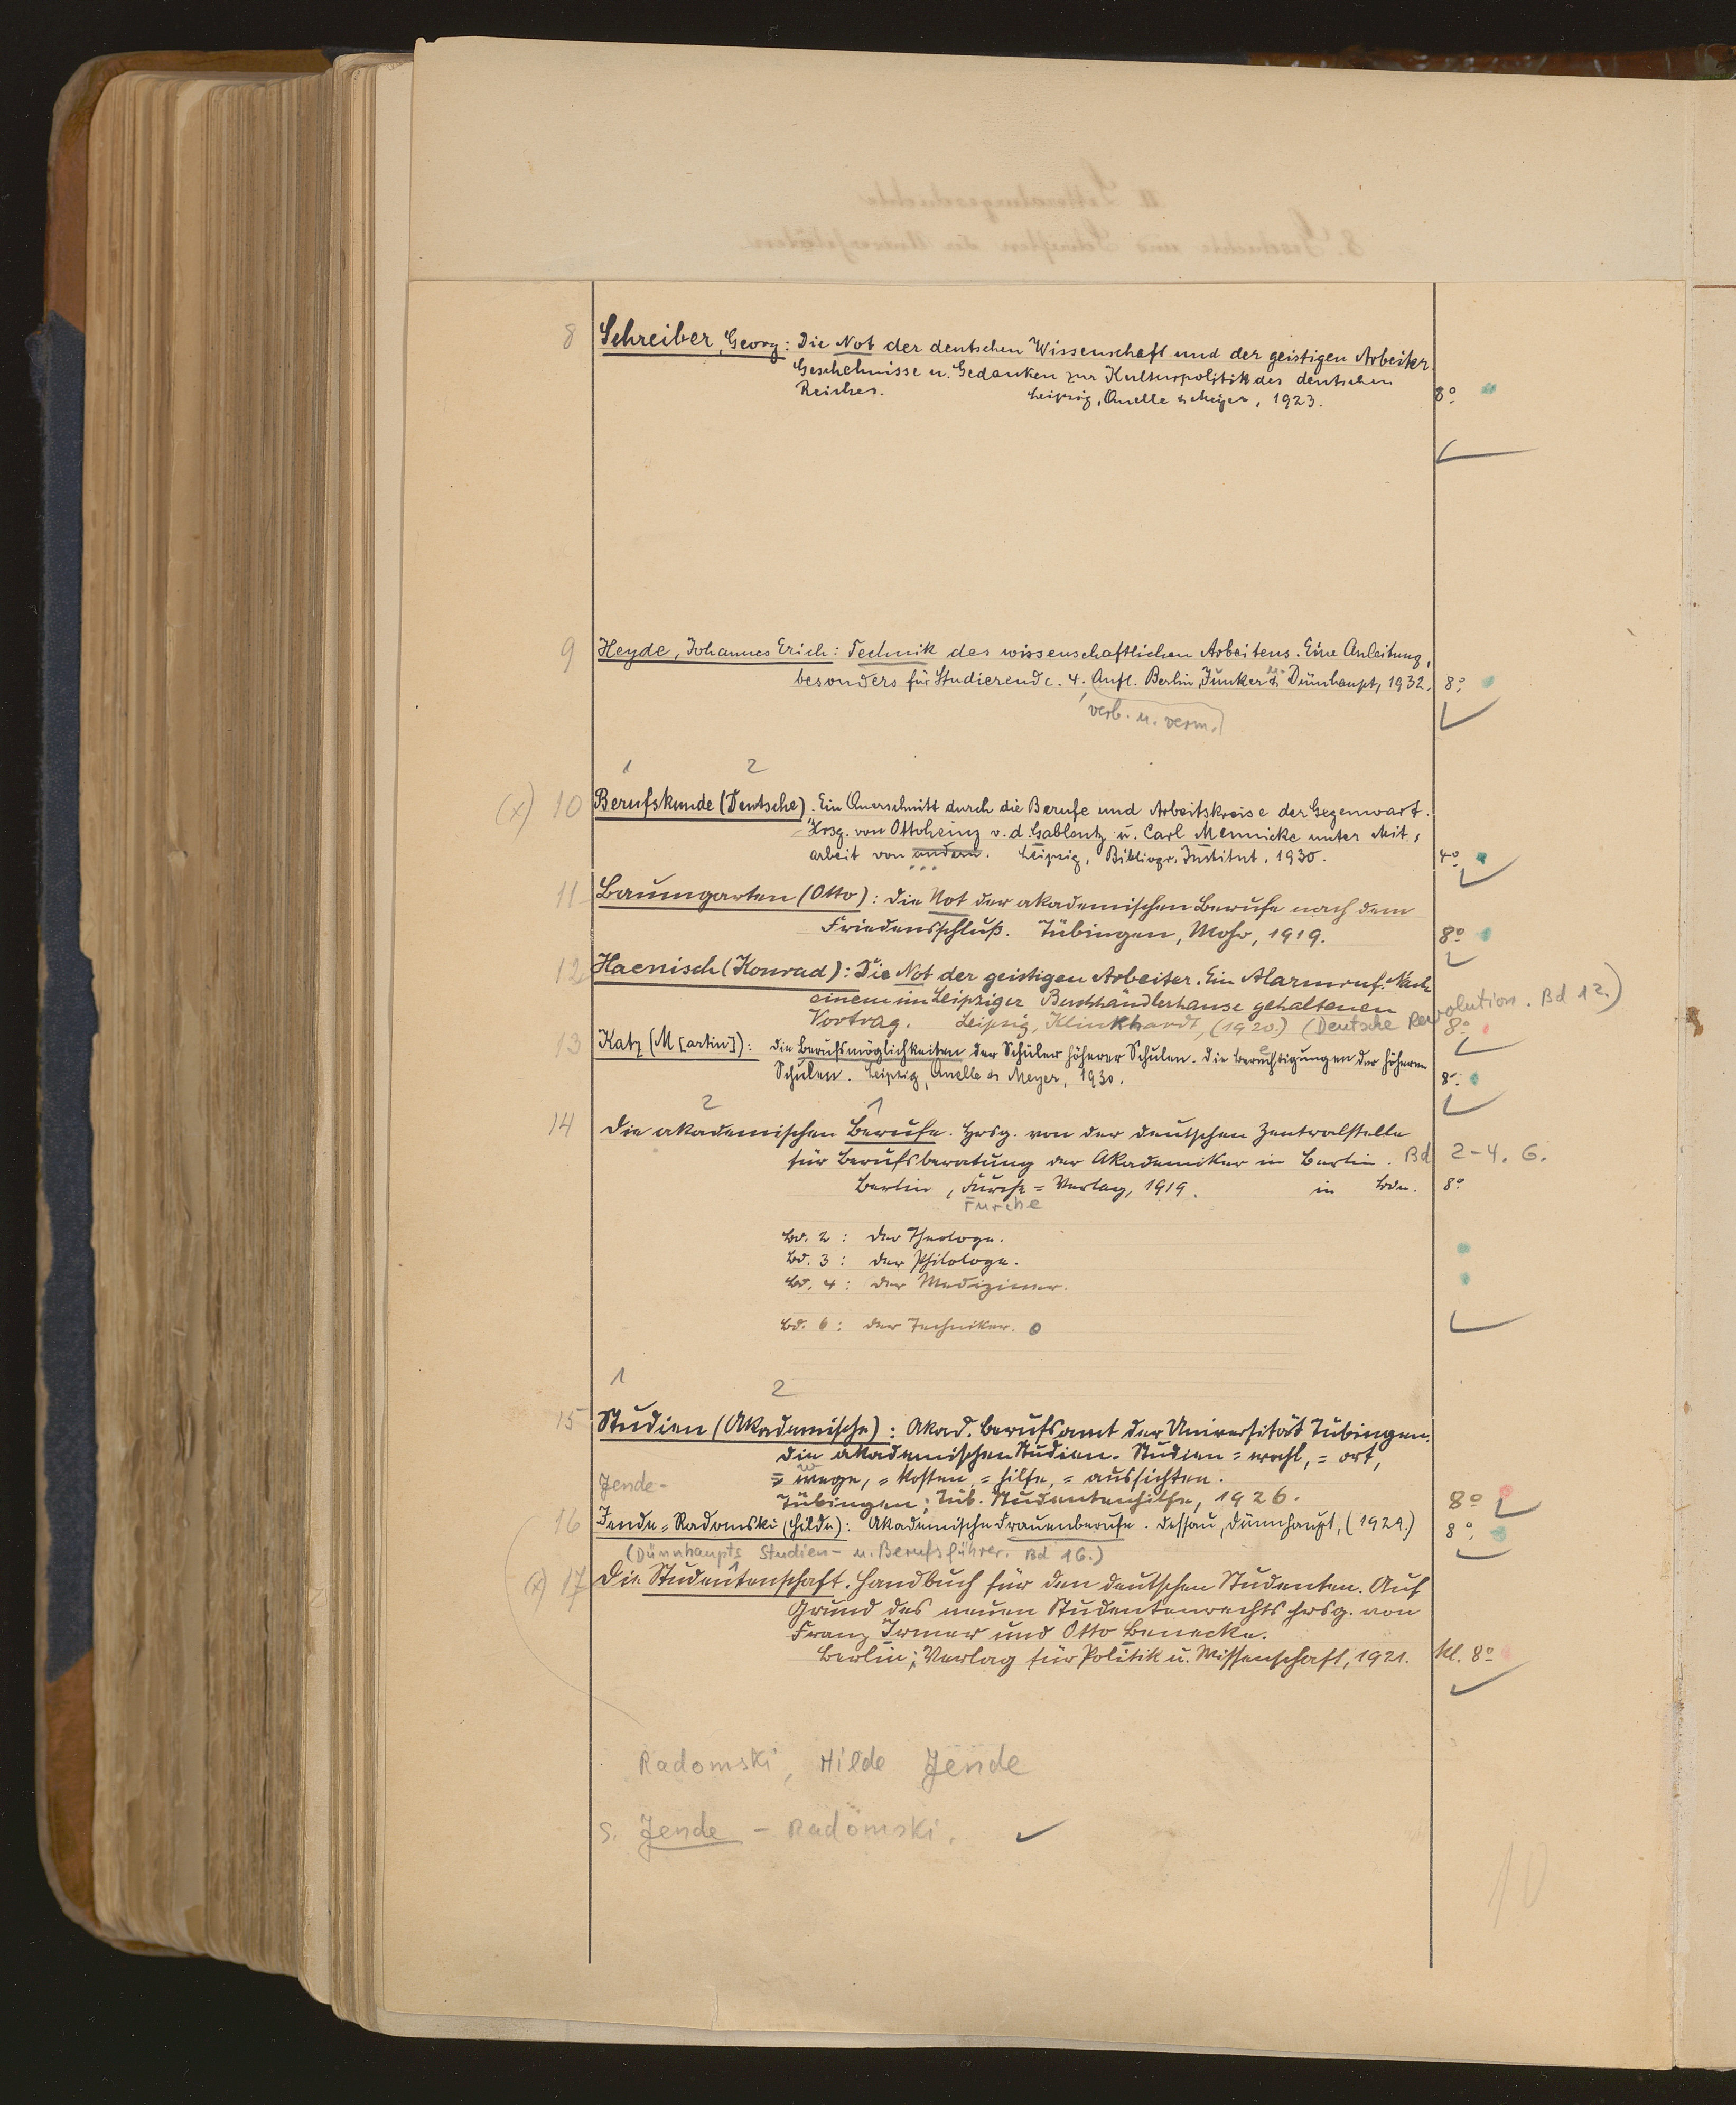 8 Schreiber, Georg: Die Not der deutschen Wissenschaft und der geistigen Arbeiter.
Geschehnisse u. Gedanken zur Kulturpolitik des deutschen
Reiches. Leipzig, Quelle & Meyer, 1923. 8°.
9 Heyde, Johannes Erich: Technik des wissenschaftlichen Arbeitens. Eine Anleitung,
besonders für Studierende. 4. Aufl. Berlin, Junker & Dünnhaupt, 1932. 8°.
verb. u. verm.
1 2
(x) 10 Berufskunde (Deutsche). Ein Querschnitt durch die Berufe und Arbeitskreise der Gegenwart.
Hrsg. von Ottoheinz v. d. Gablentz u. Carl Mennicke unter Mit-
arbeit von andern. Leipzig, Bibliogr. Institut, 1930. 4°
11 Baumgarten (Otto): Die Not der akademischen Berufe nach dem
Friedensschluß. Tübingen, Mohr, 1919. 8°
12 Haenisch (Konrad): Die Not der geistigen Arbeiter. Ein Alarmruf. Nach
einem im Leipziger Buchhändlerhause gehaltenen
Vortrag. Leipzig, Klinkhardt, (1920.) (Deutsche Revolution. Bd 12.) 8°
13 Katz (M[artin]): Die Berufsmöglichkeiten der Schüler höherer Schulen. Die Berechtigungen der höheren
Schulen. Leipzig, Quelle & Meyer, 1930. 8°.
2 1
14 Die akademischen Berufe. Hrsg. von der deutschen Zentralstelle
für Berufsberatung der Akademiker in Berlin. Bd 2-4. 6.
Berlin, Furche=Verlag, 1919. in Bdn. 8°
Furche
Bd. 2: Der Theologe.
Bd. 3: Der Philologe.
Bd. 4: Der Mediziner.
Bd. 6: Der Techniker. o
1 2
15 Studien (Akademische): Akad. Berufsamt der Universität Tübingen.
Die akademischen Studien. Studien=wahl, =ort,
=wege, =kosten, =hilfe, =aussichten.
Tübingen: Tüb. Studentenhilfe, 1926. 8°
Jende-
16 Jende=Radomski (Hilde): Akademische Frauenberufe. Dessau, Dünnhaupt, (1929.) 8°.
(Dünnhaupts Studien- u. Berufsführer. Bd 16.)
(x) 17 Die Studentenschaft. Handbuch für den deutschen Studenten. Auf
Grund des neuen Studentenrechts hrsg. von
Franz Irmer und Otto Benecke.
Berlin: Verlag für Politik u. Wissenschaft, 1921. Kl. 8°
Radomski, Hilde Jende
s. Jende - Radomski.
10